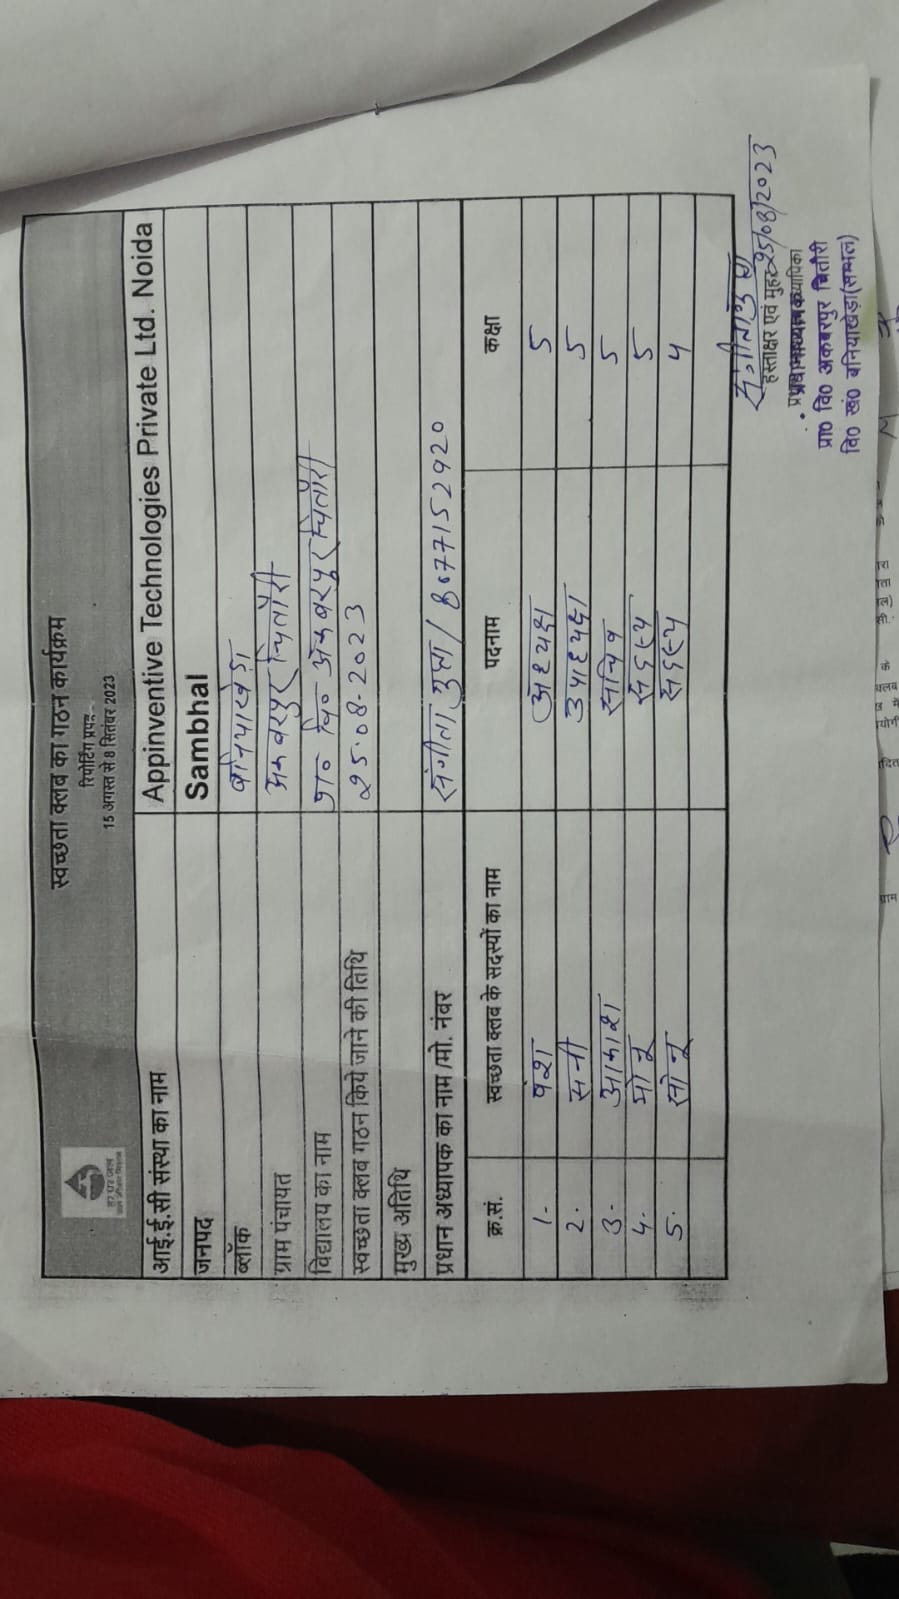 स्वच्छता क्लब का गठन कार्यक्रम
रिपोर्टिंग प्रपत्र
15 अगस्त से 8 सितंबर 2023
हर घर जल
जल जीवन मिशन
आई.ई.सी संस्था का नाम Appinventive Technologies Private Ltd. Noida
जनपद Sambhal
ब्लॉक बनियाखेड़ा
ग्राम पंचायत अकबरपुर चितौरी
विद्यालय का नाम प्रा० वि० अकबरपुर चितौरी
स्वच्छता क्लव गठन किये जाने की तिथि 25.08-2023
मुख्य अतिथि
प्रधान अध्यापक का नाम /मो. नंबर संगीता गुप्ता / 8077152920
क्र.सं. स्वच्छता क्लव के सदस्यों का नाम पदनाम कक्षा
1- वंश अध्यक्ष 5
2. सनी उपाध्यक्ष 5
3- आकाश सचिव 5
4. मोनू सदस्य 5
5. सोनू सदस्य 4
हस्ताक्षर एवं मुहर 25/08/2023
प्रा० वि० अकबरपुर चितौरी
वि० खं० बनियाखेड़ा(सम्भल)
के
ग्राम